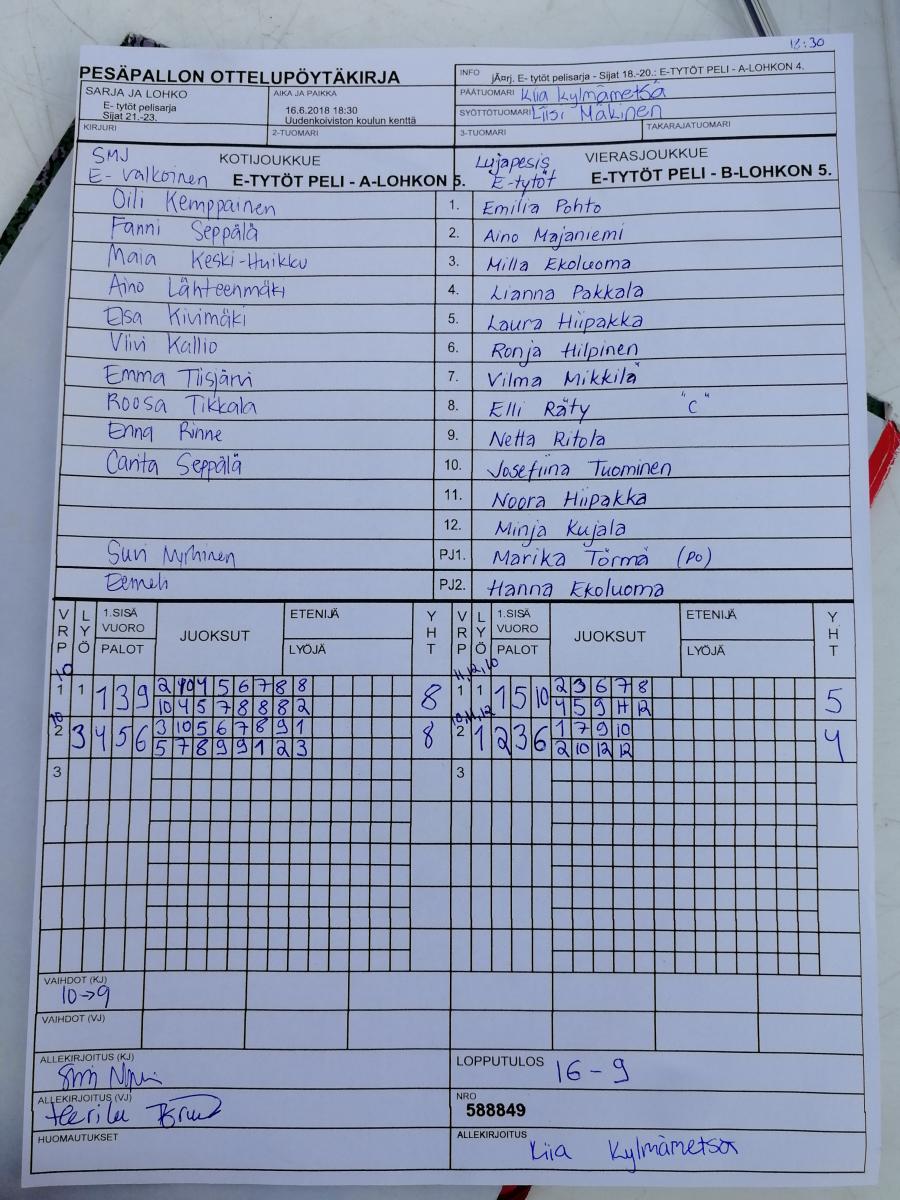 18:30
PESÄPALLON OTTELUPÖYTÄKIRJA
INFO jÃ¤rj. E- tytöt pelisarja - Sijat 18.-20.: E-TYTÖT PELI - A-LOHKON 4.
SARJA JA LOHKO
E- tytöt pelisarja
Sijat 21.-23.
AIKA JA PAIKKA
16.6.2018 18:30
Uudenkoiviston koulun kenttä
PÄÄTUOMARI Kiia Kylmämetsä
SYÖTTÖTUOMARI Liisi Mäkinen
KIRJURI
2-TUOMARI
3-TUOMARI
TAKARAJATUOMARI
SMJ
E- valkoinen
KOTIJOUKKUE
E-TYTÖT PELI - A-LOHKON 5.
Lujapesis
E-tytöt
VIERASJOUKKUE
E-TYTÖT PELI - B-LOHKON 5.
Oili Kemppainen 1. Emilia Pohto
Fanni Seppälä 2. Aino Majaniemi
Maia Keski-Huikku 3. Milla Ekoluoma
Aino Lähteenmäki 4. Lianna Pakkala
Elsa Kivimäki 5. Laura Hiipakka
Viivi Kallio 6. Ronja Hilpinen
Emma Tiisjärvi 7. Vilma Mikkilä
Roosa Tikkala 8. Elli Räty "C"
Enna Rinne 9. Netta Ritola
Carita Seppälä 10. Josefiina Tuominen
11. Noora Hiipakka
12. Minja Kujala
Suvi PJ1. Marika Törmä (PO)
PJ2. Hanna Ekoluoma
VRP LYÖ 1.SISÄ VUORO PALOT JUOKSUT ETENIJÄ LYÖJÄ YHT VRP LYÖ 1.SISÄ VUORO PALOT JUOKSUT ETENIJÄ LYÖJÄ YHT
10 11,12,10
1 1 1 3 9 2 10 4 5 6 7 8 8 8 1 1 1 5 10 2 3 6 7 8 5
10 4 5 7 8 8 8 2 4 5 9 11 12
10 10,11,12
2 3 4 5 6 3 10 5 6 7 8 9 1 8 2 1 2 3 6 1 7 9 10 4
5 7 8 9 9 1 2 3 2 10 12 12
3 3
VAIHDOT (KJ)
10→9
VAIHDOT (VJ)
ALLEKIRJOITUS (KJ)
LOPPUTULOS 16 - 9
ALLEKIRJOITUS (VJ)
NRO
588849
HUOMAUTUKSET
ALLEKIRJOITUS
Kiia Kylmämetsä